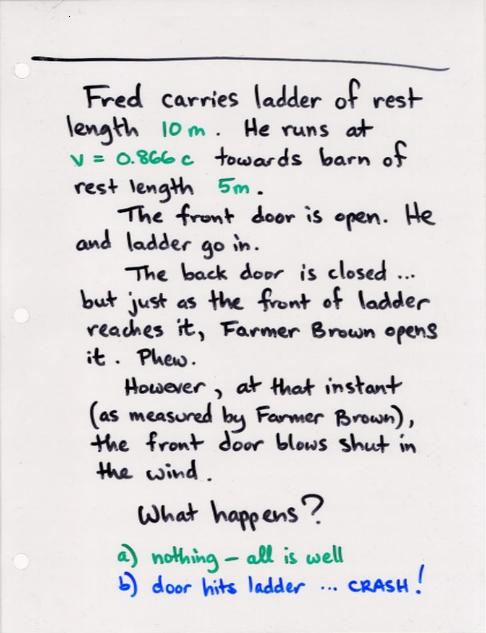 Fred carries ladder of rest
length 10 m. He runs at
v = 0.866 c towards barn of
rest length 5m.
The front door is open. He
and ladder go in.
The back door is closed ...
but just as the front of ladder
reaches it, Farmer Brown opens
it. Phew.
However, at that instant
(as measured by Farmer Brown),
the front door blows shut in
the wind.
What happens?
a) nothing – all is well
b) door hits ladder ... CRASH!